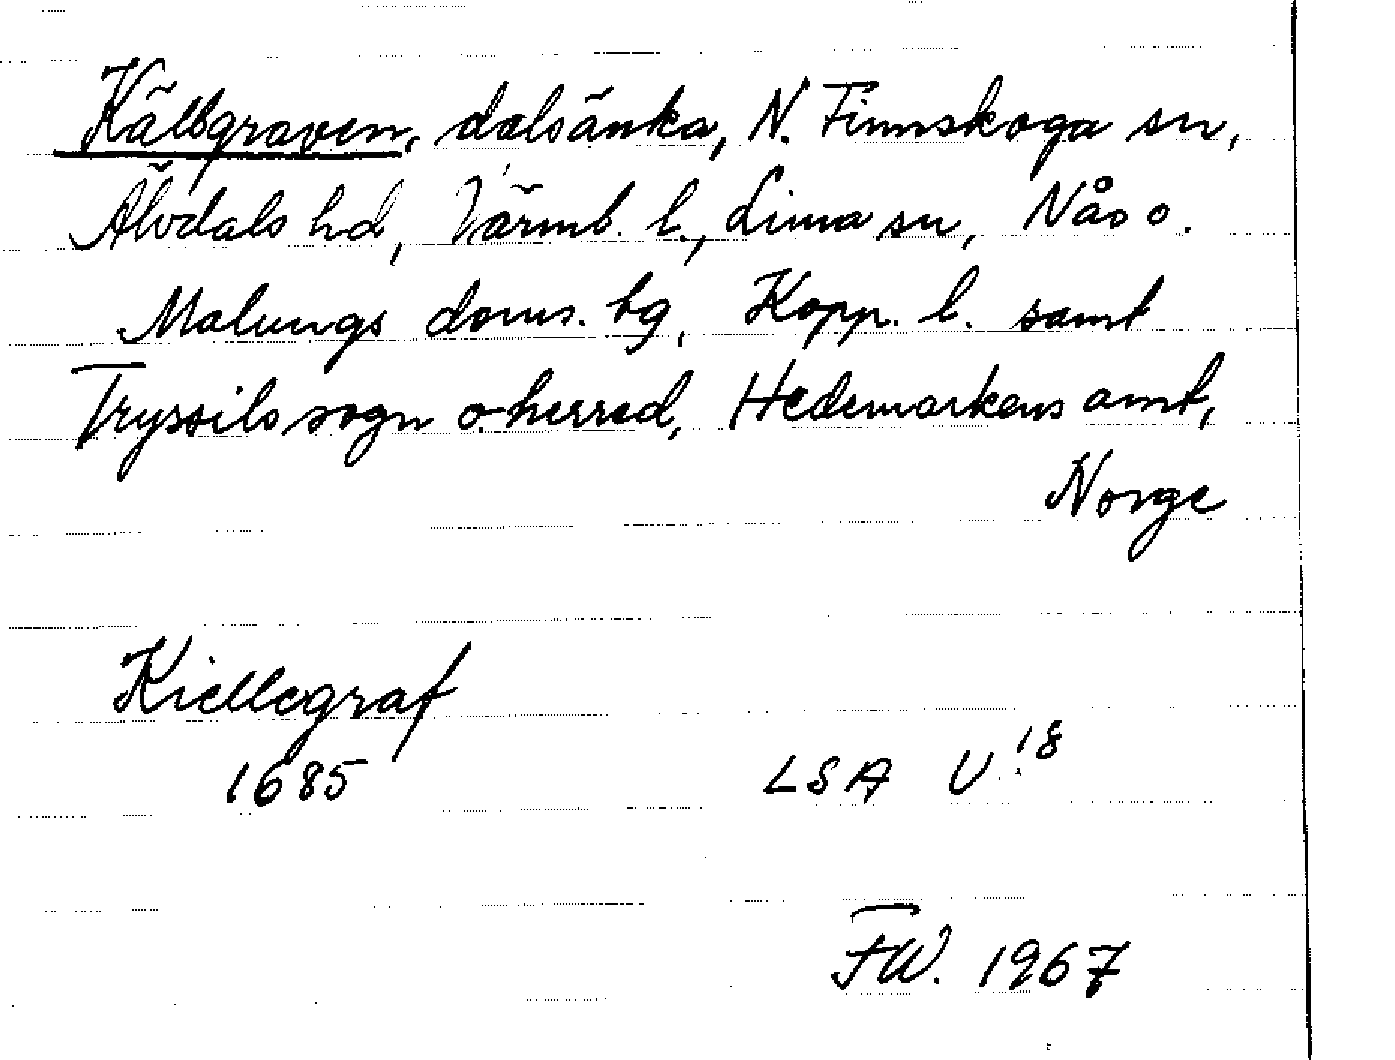 Källgraven, dalsänka, N. Finnskoga sn,
Älvdals hd, Värml. l., Lima sn, Nås o.
Malungs doms. bg, Kopp. l. samt
Tryssils sogn o. herred, Hedemarkens amt,
Norge
Kiellegraf
1685 LSA U.18
FW. 1967